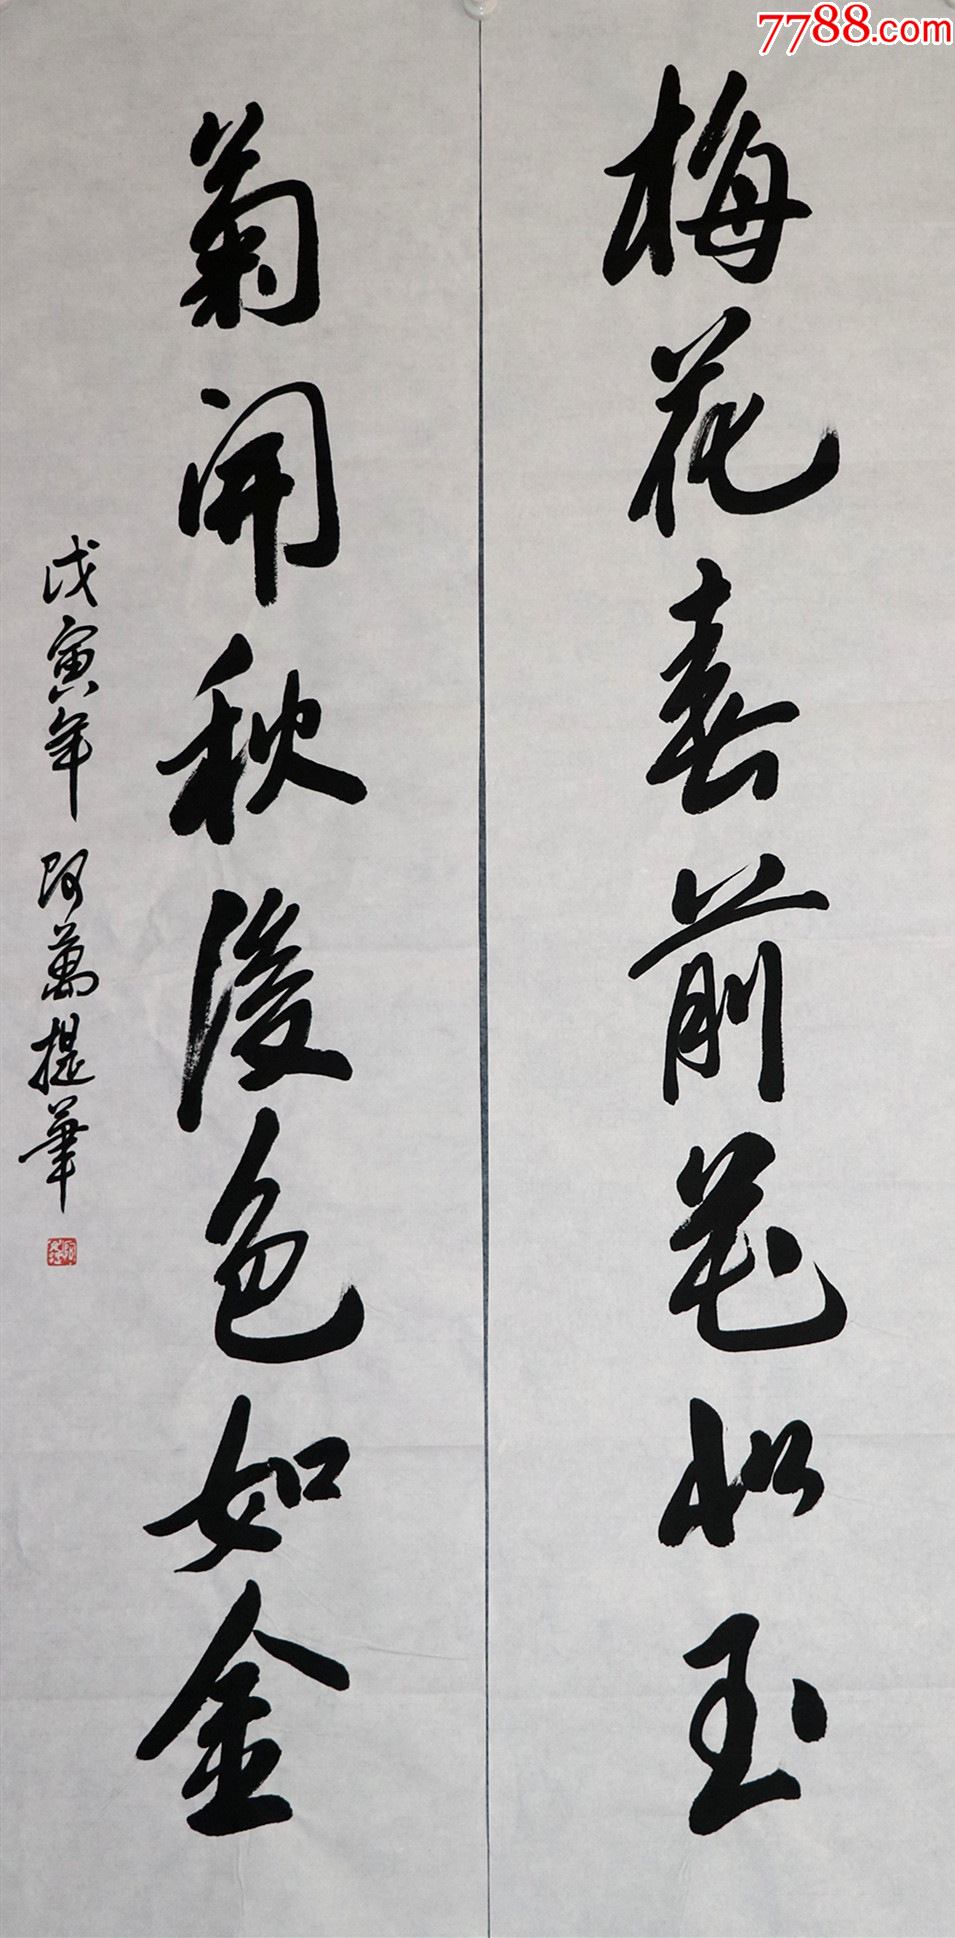 7788.com
梅花春前花似玉
菊開秋後色如金
戊寅年 阿萬提筆